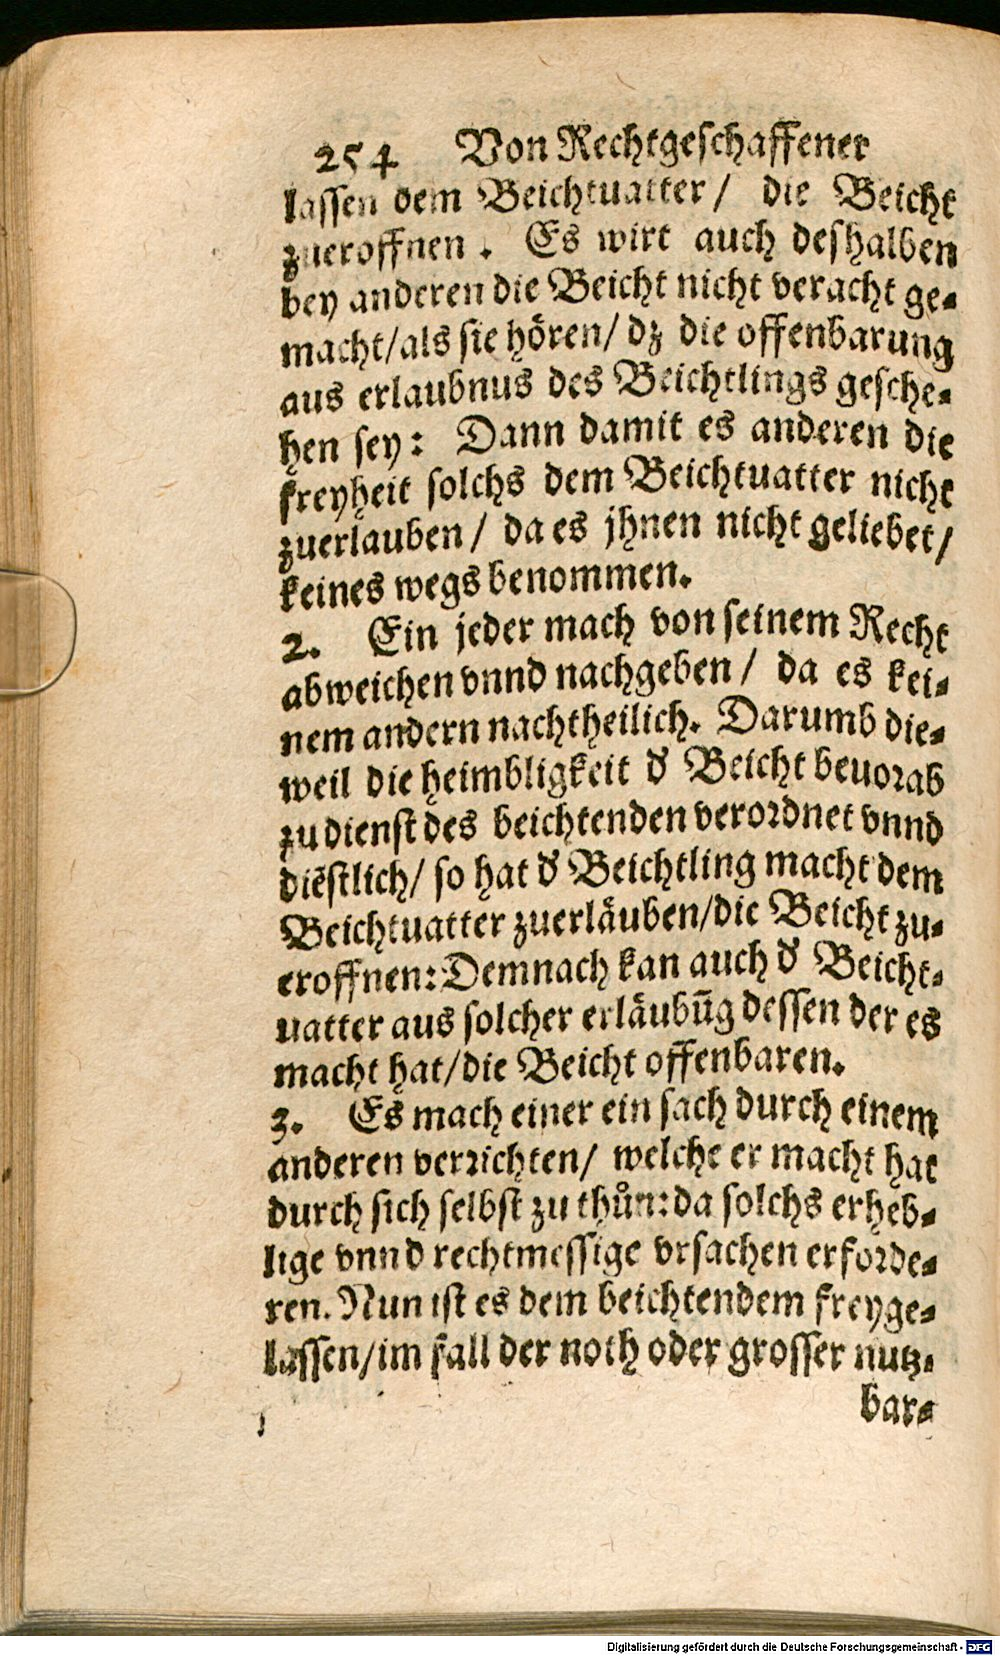 254 Von Rechtgeschaffener
lassen dem Beichtuatter/ die Beicht
zueroffnen. Es wirt auch deshalben
bey anderen die Beicht nicht veracht ge-
macht/als sie hören/ dz die offenbarung
aus erlaubnus des Beichtlings gesche-
hen sey: Dann damit es anderen die
freyheit solchs dem Beichtuatter nicht
zuerlauben/ da es jhnen nicht geliebet/
keines wegs benommen.
2. Ein jeder mach von seinem Recht
abweichen vnnd nachgeben/ da es kei-
nem andern nachtheilich. Darumb die-
weil die heimbligkeit d̕ Beicht beuorab
zu dienst des beichtenden verordnet vnnd
diẽstlich/ so hat d̕ Beichtling macht dem
Beichtuatter zuerläuben/die Beicht zu-
eroffnen: Demnach kan auch d̕ Beicht-
uatter aus solcher erläubũg dessen der es
macht hat/die Beicht offenbaren.
3. Es mach einer ein sach durch einem
anderen verrichten/ welche er macht hat
durch sich selbst zu thůn: da solchs erheb-
lige vnnd rechtmessige vrsachen erforde-
ren. Nun ist es dem beichtendem freyge-
lassen/im fall der noth oder grosser nutz-
bar-
Digitalisierung gefördert durch die Deutsche Forschungsgemeinschaft - DFG